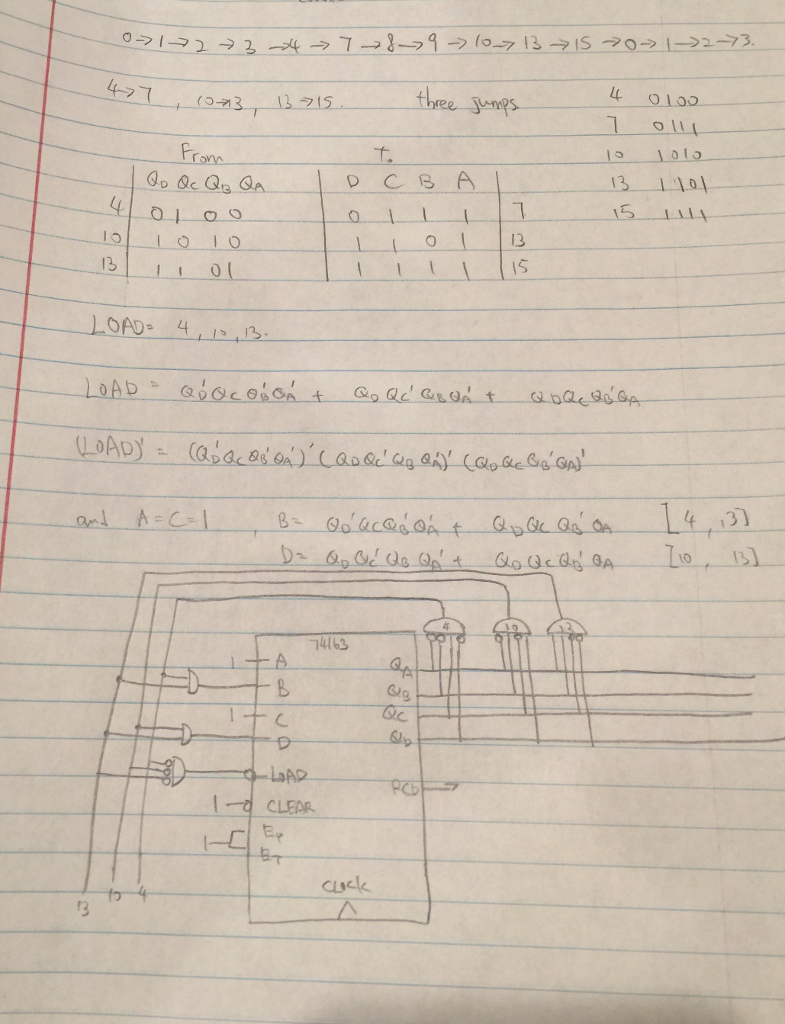 0→1→2→3→4→7→8→9→10→13→15→0→1→2→3.
4→7, 10→13, 13→15. three jumps
4 0100
7 0111
10 1010
13 1101
15 1111
From To
QD QC QB QA D C B A
4 0 1 0 0 0 1 1 1 7
10 1 0 1 0 1 1 0 1 13
13 1 1 0 1 1 1 1 1 15
LOAD = 4, 10, 13.
LOAD = QD'QCQB'QA' + QDQC'QBQA' + QDQCQB'QA
(LOAD)' = (QD'QCQB'QA')' (QDQC'QBQA')' (QDQCQB'QA)'
and A=C=1, B= QD'QCQB'QA' + QDQCQB'QA [4, 13]
D= QDQC'QBQA' + QDQCQB'QA [10, 13]
4 10 13
74163
1 A QA
B QB
1 C QC
D QD
LOAD
RCO
1 CLEAR
1 EP
ET
Clock
13 10 4